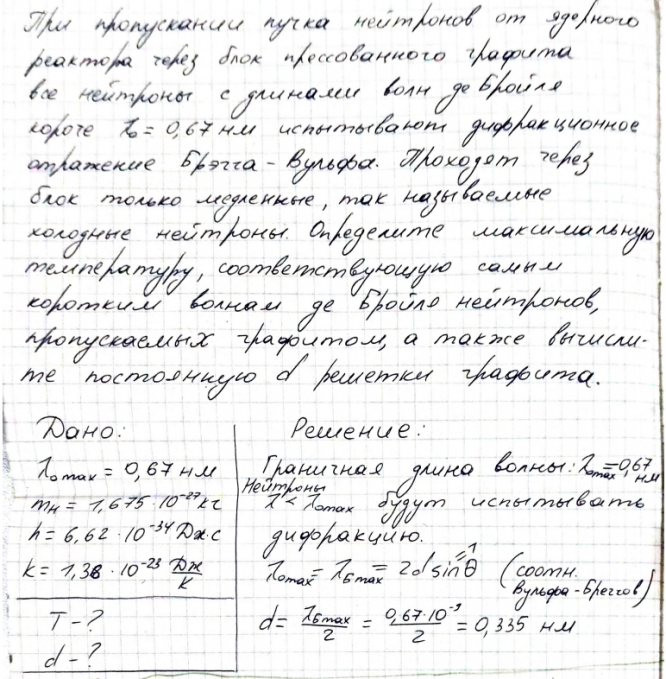 При пропускании пучка нейтронов от ядерного
реактора через блок прессованного графита
все нейтроны с длинами волн де Бройля
короче λ₀ = 0,67 нм испытывают дифракционное
отражение Брэгга - Вульфа. Проходят через
блок только медленные, так называемые
холодные нейтроны. Определите максимальную
температуру, соответствующую самым
коротким волнам де Бройля нейтронов,
пропускаемых графитом, а также вычисли-
те постоянную d решетки графита.
Дано:
λ₀ max = 0,67 нм
mн = 1,675 · 10⁻²⁷ кг
h = 6,62 · 10⁻³⁴ Дж·с
k = 1,38 · 10⁻²³ Дж/К
T - ?
d - ?
Решение:
Граничная длина волны: λ₀max = 0,67 нм
Нейтроны
λ < λ₀max будут испытывать
дифракцию.
λ₀max = λБmax = 2d sinθ (соотн. Вульфа-Бреггов)
=1
d = λБmax/2 = 0,67·10⁻⁹/2 = 0,335 нм